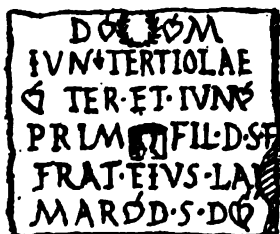 D M
IVN TERTIOLAE
TER·ET·IVN
PRIM FIL·D·S
FRAT·EIVS·LA
MAR D·S·D